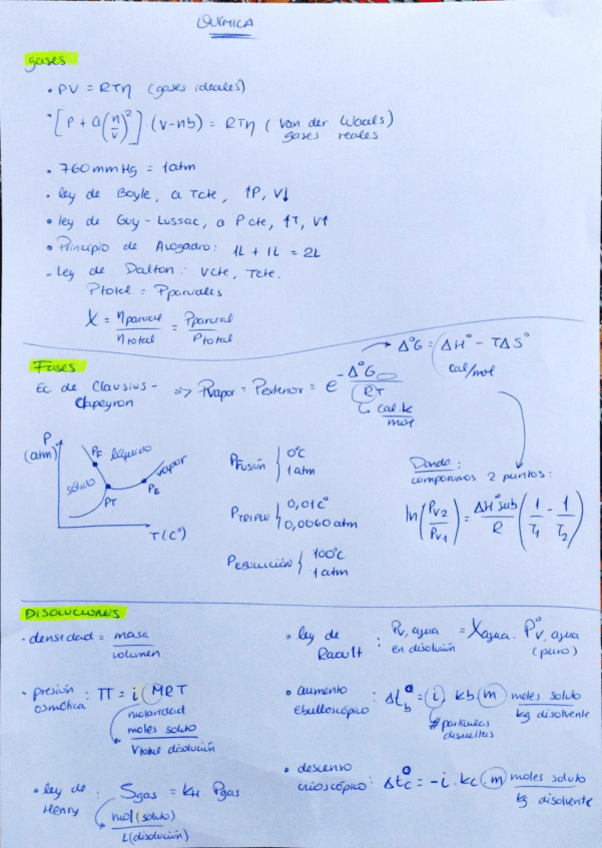 QUÍMICA
gases
• PV = RTη (gases ideales)
• [P + a(n/v)²]·(v-nb) = RTη (Van der Waals)
gases reales
• 760mmHg = 1atm
• ley de Boyle, a Tcte, ↑P, V↓
• ley de Guy-Lussac, a Pcte, ↑T, V↑
• Principio de Avogadro: 1L + 1L = 2L
• Ley de Dalton: Vcte, Tcte.
Ptotal = Pparciales
X = ηparcial/ηtotal = Pparcial/Ptotal
→ Δ°G = ΔH° - TΔS°
cal/mol
Fases
Ec de Clausius-Clapeyron => Pvapor = Pexterior = e^(-Δ°G/RT)
cal.k/mol
P (atm)
PF líquido
vapor
sólido
PE
PT
T(C°)
PFusión { 0°C
1atm
PTRIPLE { 0,01C°
0,0060atm
PEBULLICIÓN { 100°C
1atm
Donde:
comparamos 2 puntos:
ln(Pv2/Pv1) = ΔH°sub/R (1/T1 - 1/T2)
DISOLUCIONES
• densidad = masa/volumen
• presión osmótica: π = i MRT
molaridad
moles soluto
Vtotal disolución
• ley de Henry: Sgas = KH. Pgas
mol(soluto)
L(disolución)
• ley de Raoult: Pv,agua en disolución = Xagua. P°v,agua (puro)
• aumento ebulloscópico: Δt°b = i. kb m moles soluto/kg disolvente
#partículas disueltas
• descenso crioscópico: Δt°c = -i. kc m moles soluto/kg disolvente